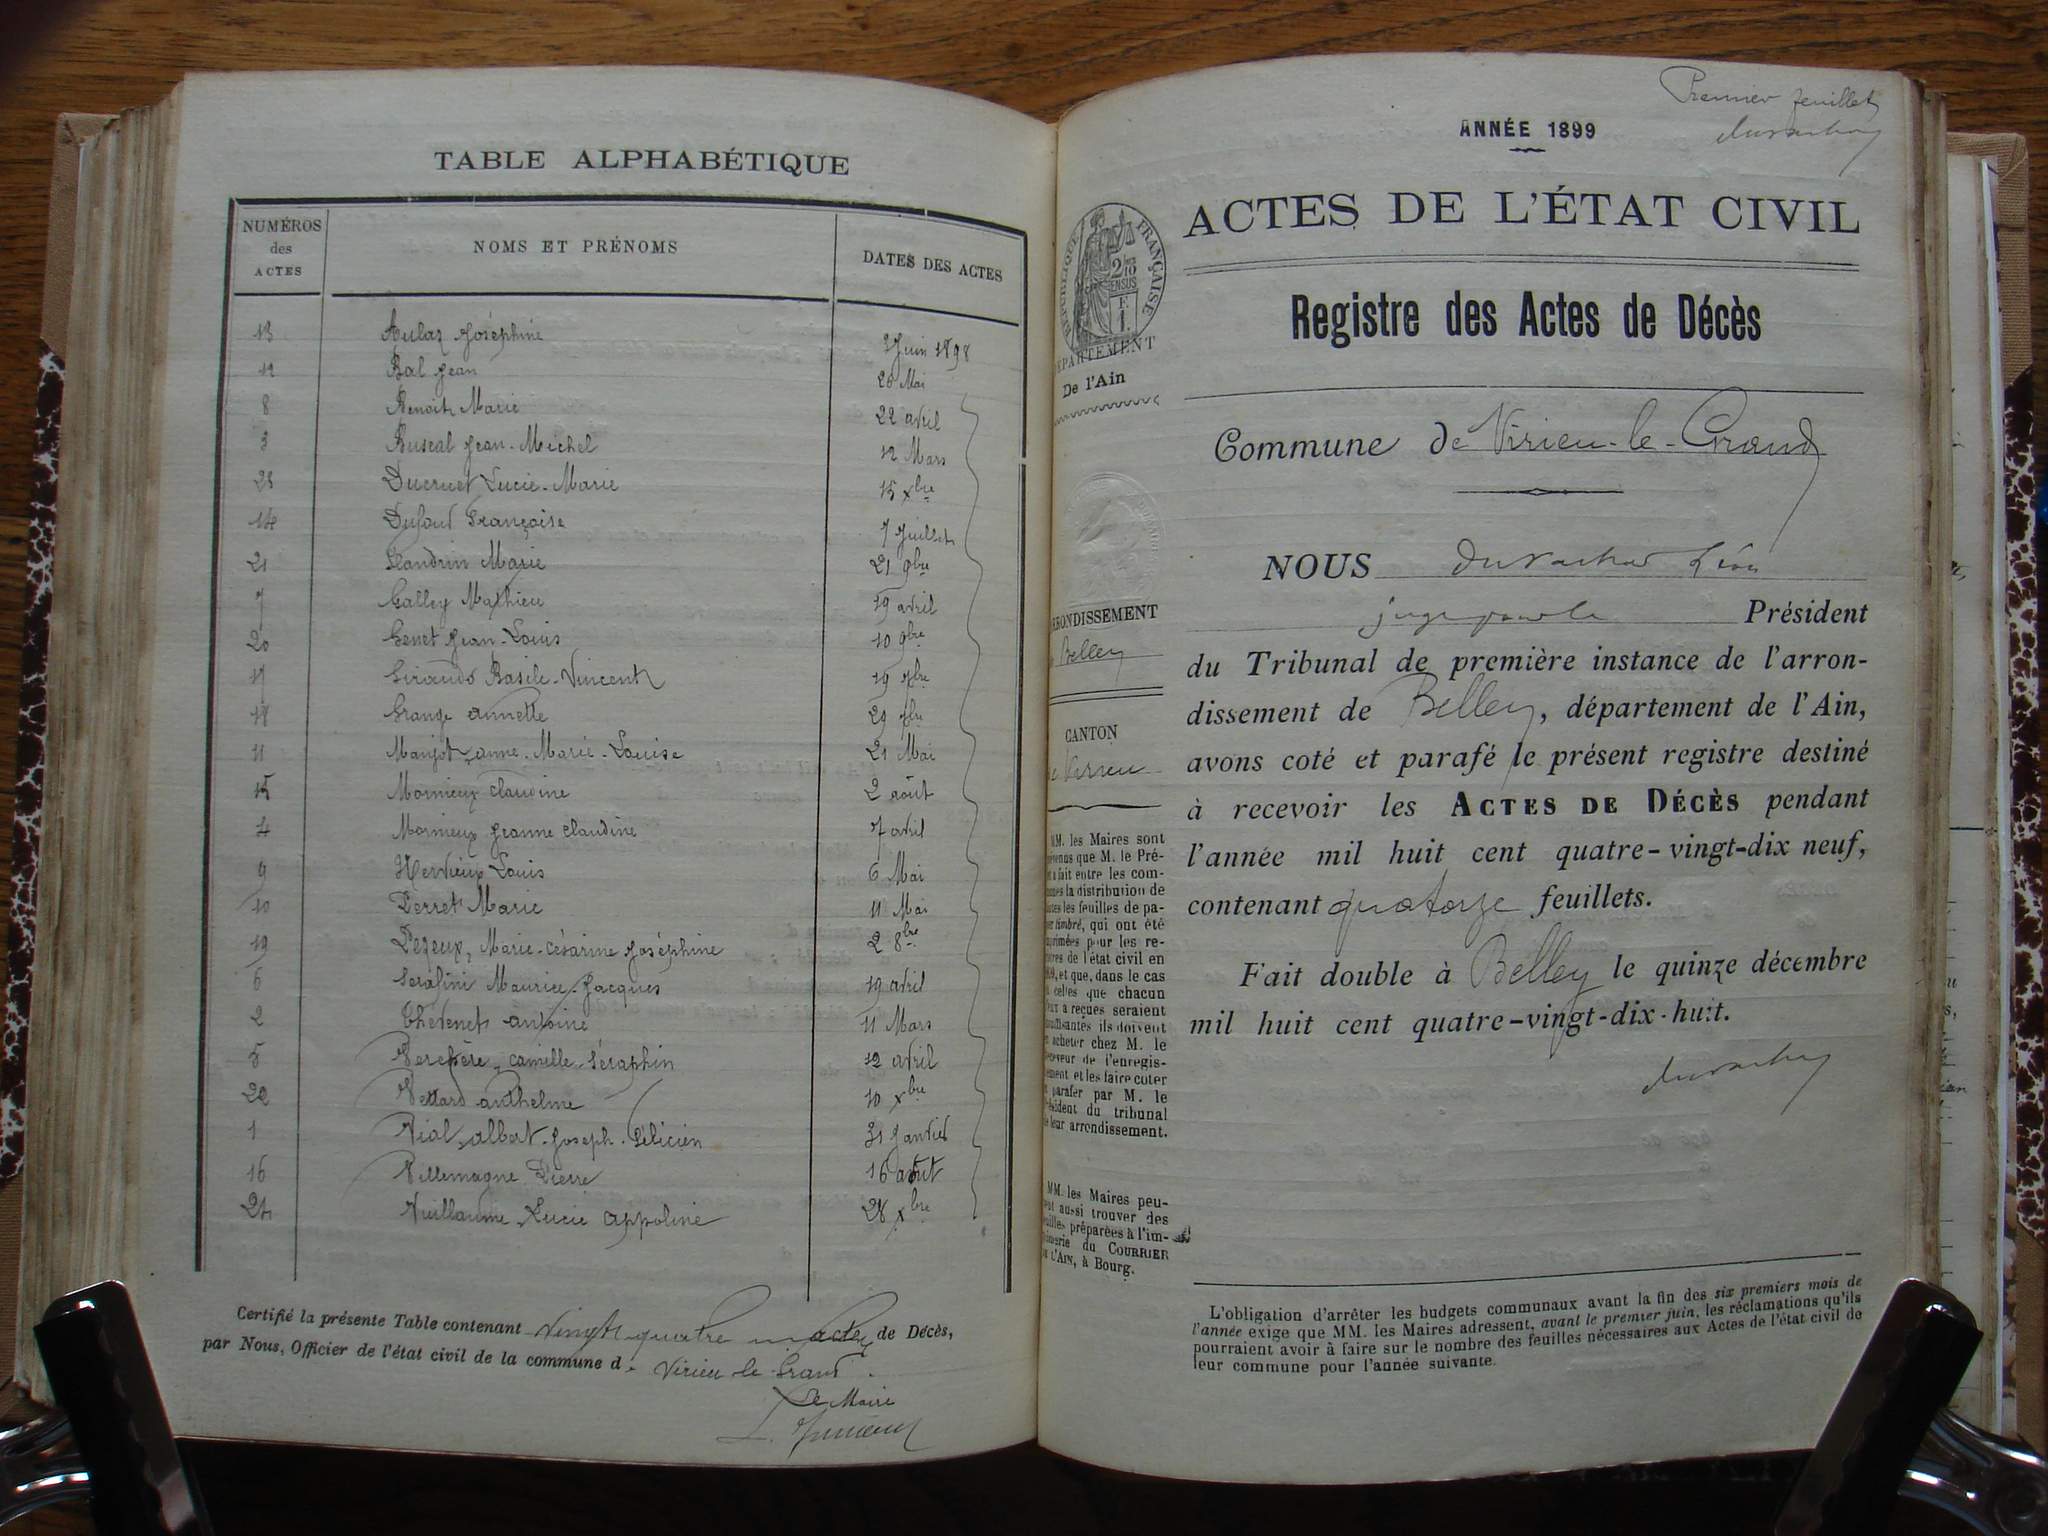 TABLE ALPHABÉTIQUE
NUMÉROS des ACTES NOMS ET PRÉNOMS DATES DES ACTES
13 Aubaz Joséphine 2 Juin 1898
12 Bal Jean 28 Mai
8 Benoit Marie 22 avril
3 Buscal Jean-Michel 12 Mars
23 Ducruet Lucie-Marie 15 Xbre
14 Dufour Françoise 7 Juillet
21 Flandrin Marie 21 9bre
7 Galley Mathieu 19 avril
20 Genet Jean-Louis 10 9bre
17 Giraudo Basile-Vincent 19 7bre
18 Grange annette 29 7bre
11 Manjot anne-Marie-Louise 21 Mai
15 Monnieux Claudine 2 août
4 Monnieux Jeanne Claudine 7 avril
9 Nervieux Louis 6 Mai
10 Perret Marie 11 Mai
19 Pezeux, Marie-Césarine Joséphine 2 8bre
6 Serafini Maurice-Jacques 19 avril
2 Thévenet antoine 11 Mars
5 Verchère, Camille-Séraphin 12 avril
22 Vettard anthelme 10 Xbre
1 Vial, albert-Joseph-Félicien 31 Janvier
16 Villemagne Pierre 16 août
24 Vuillaume Lucie Appoline 28 Xbre
Certifié la présente Table contenant Vingt-quatre actes de Décès,
par Nous, Officier de l'état civil de la commune d. Virieu-le-Grand.
Le Maire
Premier feuillet
ANNÉE 1899
ACTES DE L'ÉTAT CIVIL
RÉPUBLIQUE FRANÇAISE
DÉPARTEMENT
De l'Ain
Registre des Actes de Décès
Commune de Virieu-le-Grand
NOUS Durachat Léon
Président
du Tribunal de première instance de l'arron-
dissement de Belley, département de l'Ain,
avons coté et parafé le présent registre destiné
à recevoir les ACTES DE DÉCÈS pendant
l'année mil huit cent quatre-vingt-dix neuf,
contenant quatorze feuillets.
Fait double à Belley le quinze décembre
mil huit cent quatre-vingt-dix-huit.
RRONDISSEMENT
Belley
CANTON
de Virieu
MM. les Maires sont
venus que M. le Pré-
a fait entre les com-
nes la distribution de
utes les feuilles de pa-
er timbré, qui ont été
primées pour les re-
tres de l'état civil en
et que, dans le cas
celles que chacun
eux a reçues seraient
suffisantes ils doivent
acheter chez M. le
ceveur de l'enregis-
ement et les faire coter
parafer par M. le
ésident du tribunal
e leur arrondissement.
MM. les Maires peu-
ent aussi trouver des
uilles préparées à l'im-
imerie du COURRIER
DE L'AIN, à Bourg.
L'obligation d'arrêter les budgets communaux avant la fin des six premiers mois de
l'année exige que MM. les Maires adressent, avant le premier juin, les réclamations qu'ils
pourraient avoir à faire sur le nombre des feuilles nécessaires aux Actes de l'état civil de
leur commune pour l'année suivante.